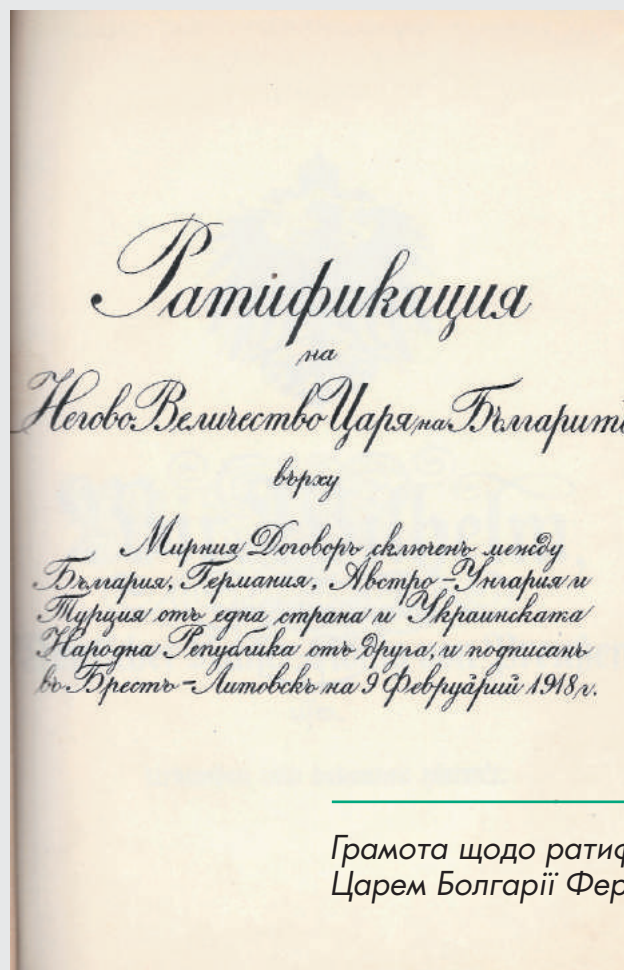 Ратификация
на
Негово Величество Царя на Българитѣ
върху
Мирния Договоръ сключенъ между
България, Германия, Австро-Унгария и
Турция отъ една страна и Украинската
Народна Република отъ друга, и подписанъ
въ Брестъ-Литовскъ на 9 Февруарий 1918 г.
Грамота щодо ратиф
Царем Болгарії Фер